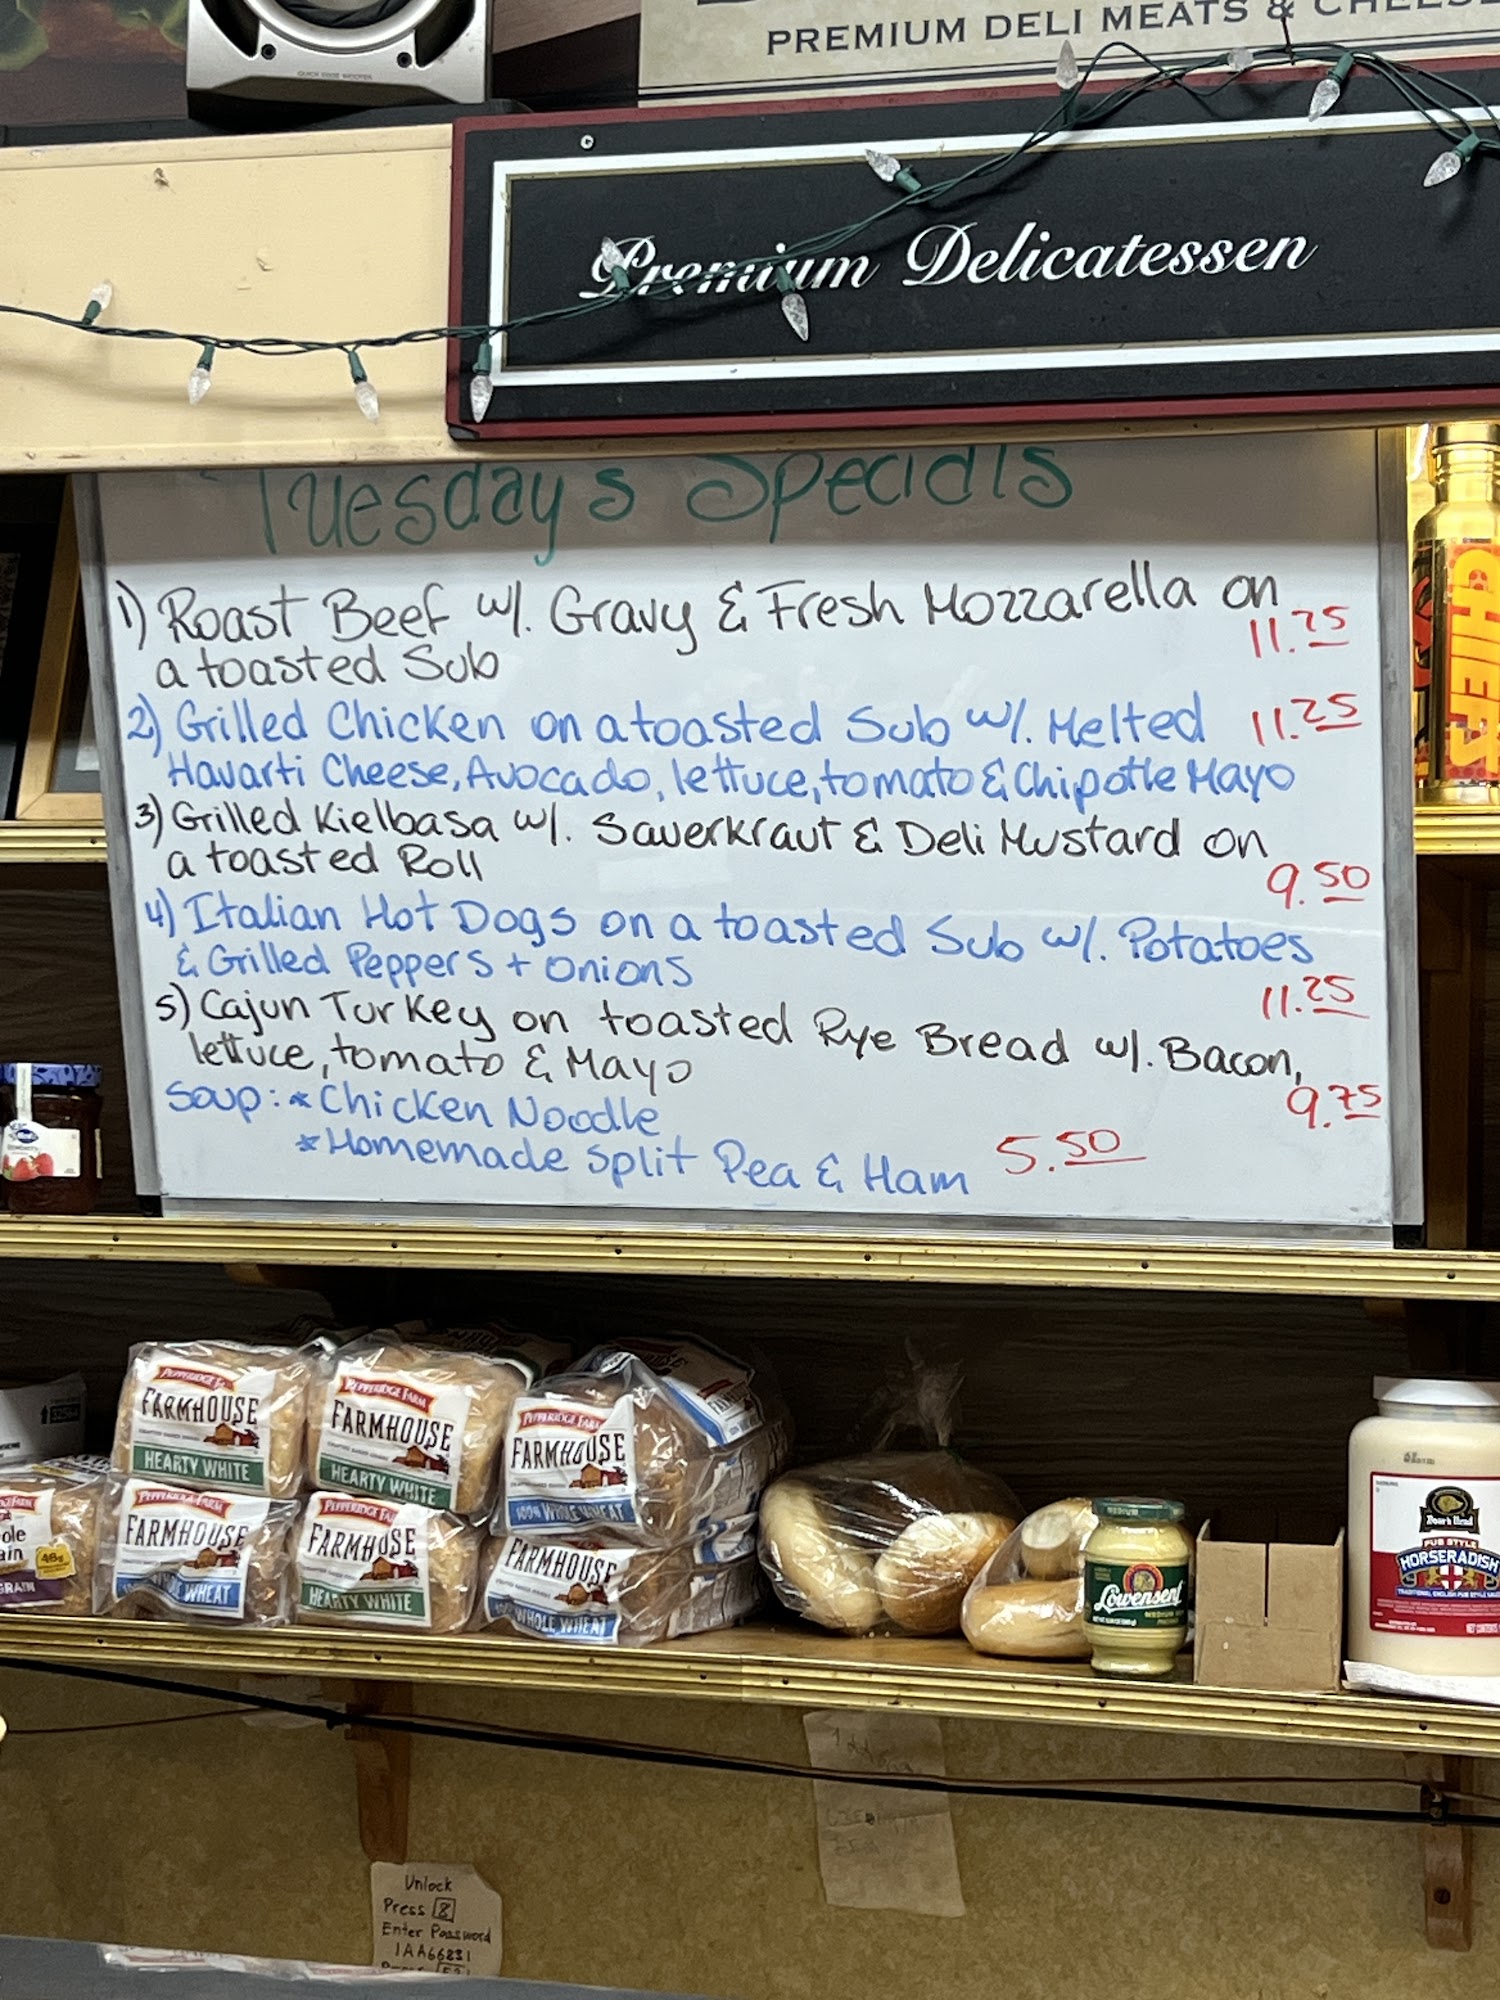 PREMIUM DELI MEATS & CHEESE
Premium Delicatessen
Tuesday's Specials
1) Roast Beef w/. Gravy & Fresh Mozzarella on
a toasted Sub
11.25
2) Grilled Chicken on a toasted Sub w/. Melted
11.25
Havarti Cheese, Avocado, lettuce, tomato & Chipotle Mayo
3) Grilled Kielbasa w/. Sauerkraut & Deli Mustard on
a toasted Roll
9.50
4) Italian Hot Dogs on a toasted Sub w/. Potatoes
& Grilled Peppers + Onions
11.25
5) Cajun Turkey on toasted Rye Bread w/. Bacon,
lettuce, tomato & Mayo
9.75
Soup: * Chicken Noodle
* Homemade Split Pea & Ham 5.50
PEPPERIDGE FARM
FARMHOUSE
HEARTY WHITE
PEPPERIDGE FARM
FARMHOUSE
HEARTY WHITE
PEPPERIDGE FARM
FARMHOUSE
100% WHOLE WHEAT
GRAIN
PEPPERIDGE FARM
FARMHOUSE
WHEAT
PEPPERIDGE FARM
FARMHOUSE
HEARTY WHITE
FARMHOUSE
WHOLE WHEAT
MEDIUM
Löwensenf
Boar's Head
PUB STYLE
HORSERADISH
Unlock
Press 8
Enter Password
1AA66831